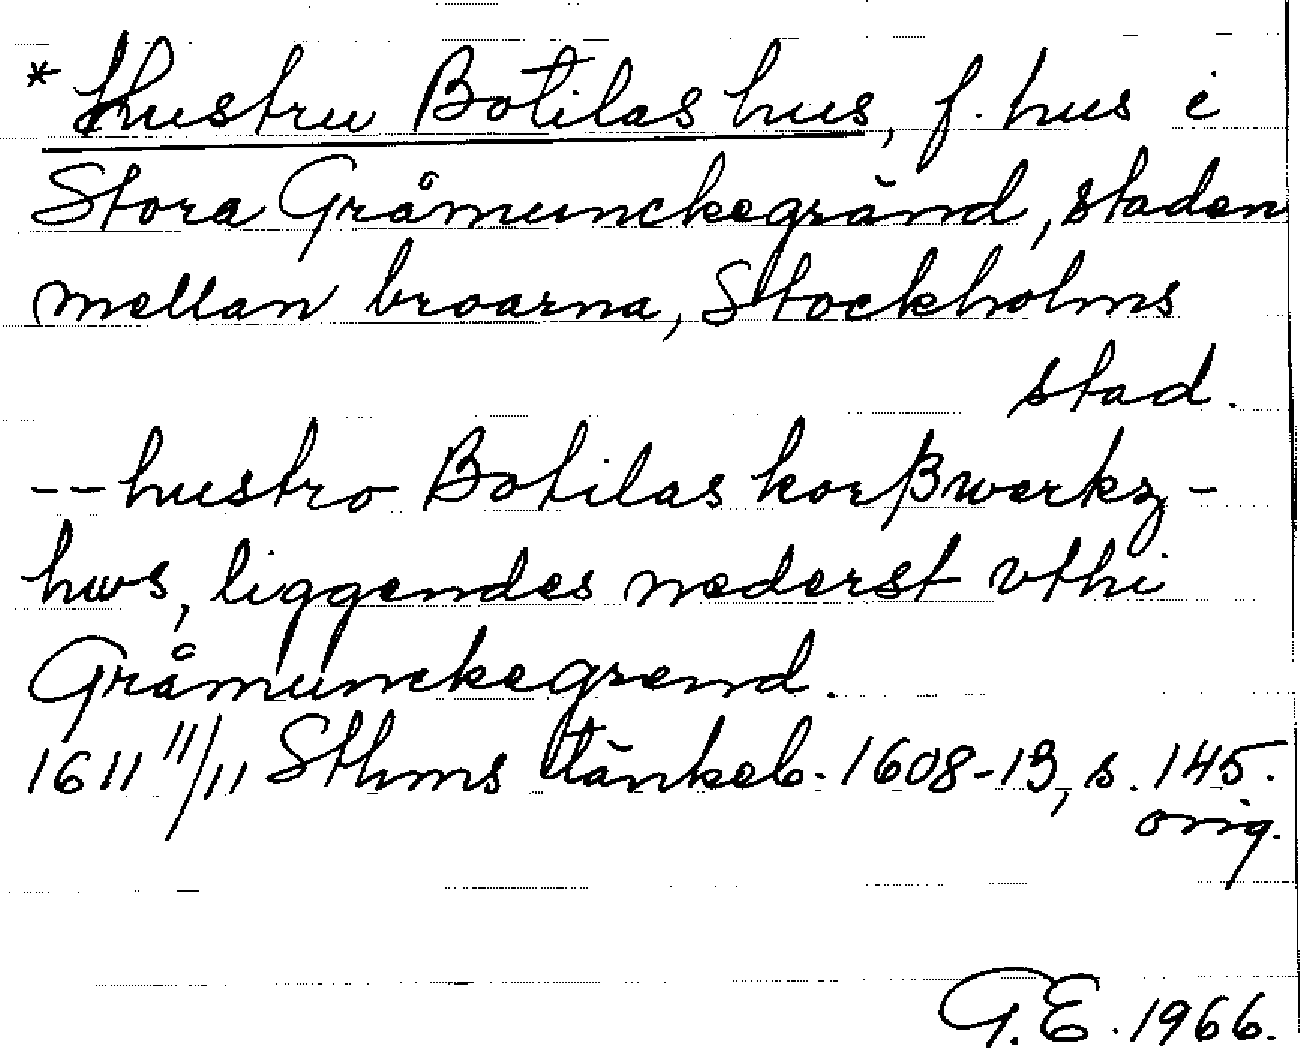 * Hustru Botilas hus, f. hus i
Stora Gråmunckegränd, staden
mellan broarna, Stockholms
stad.
-- hustro Botilas korßwerkz-
hws, liggendes nederst vthi
Gråmunckegrend.
1611 11/11 Sthms tänkeb. 1608-13, s. 145.
orig.
G.E. 1966.